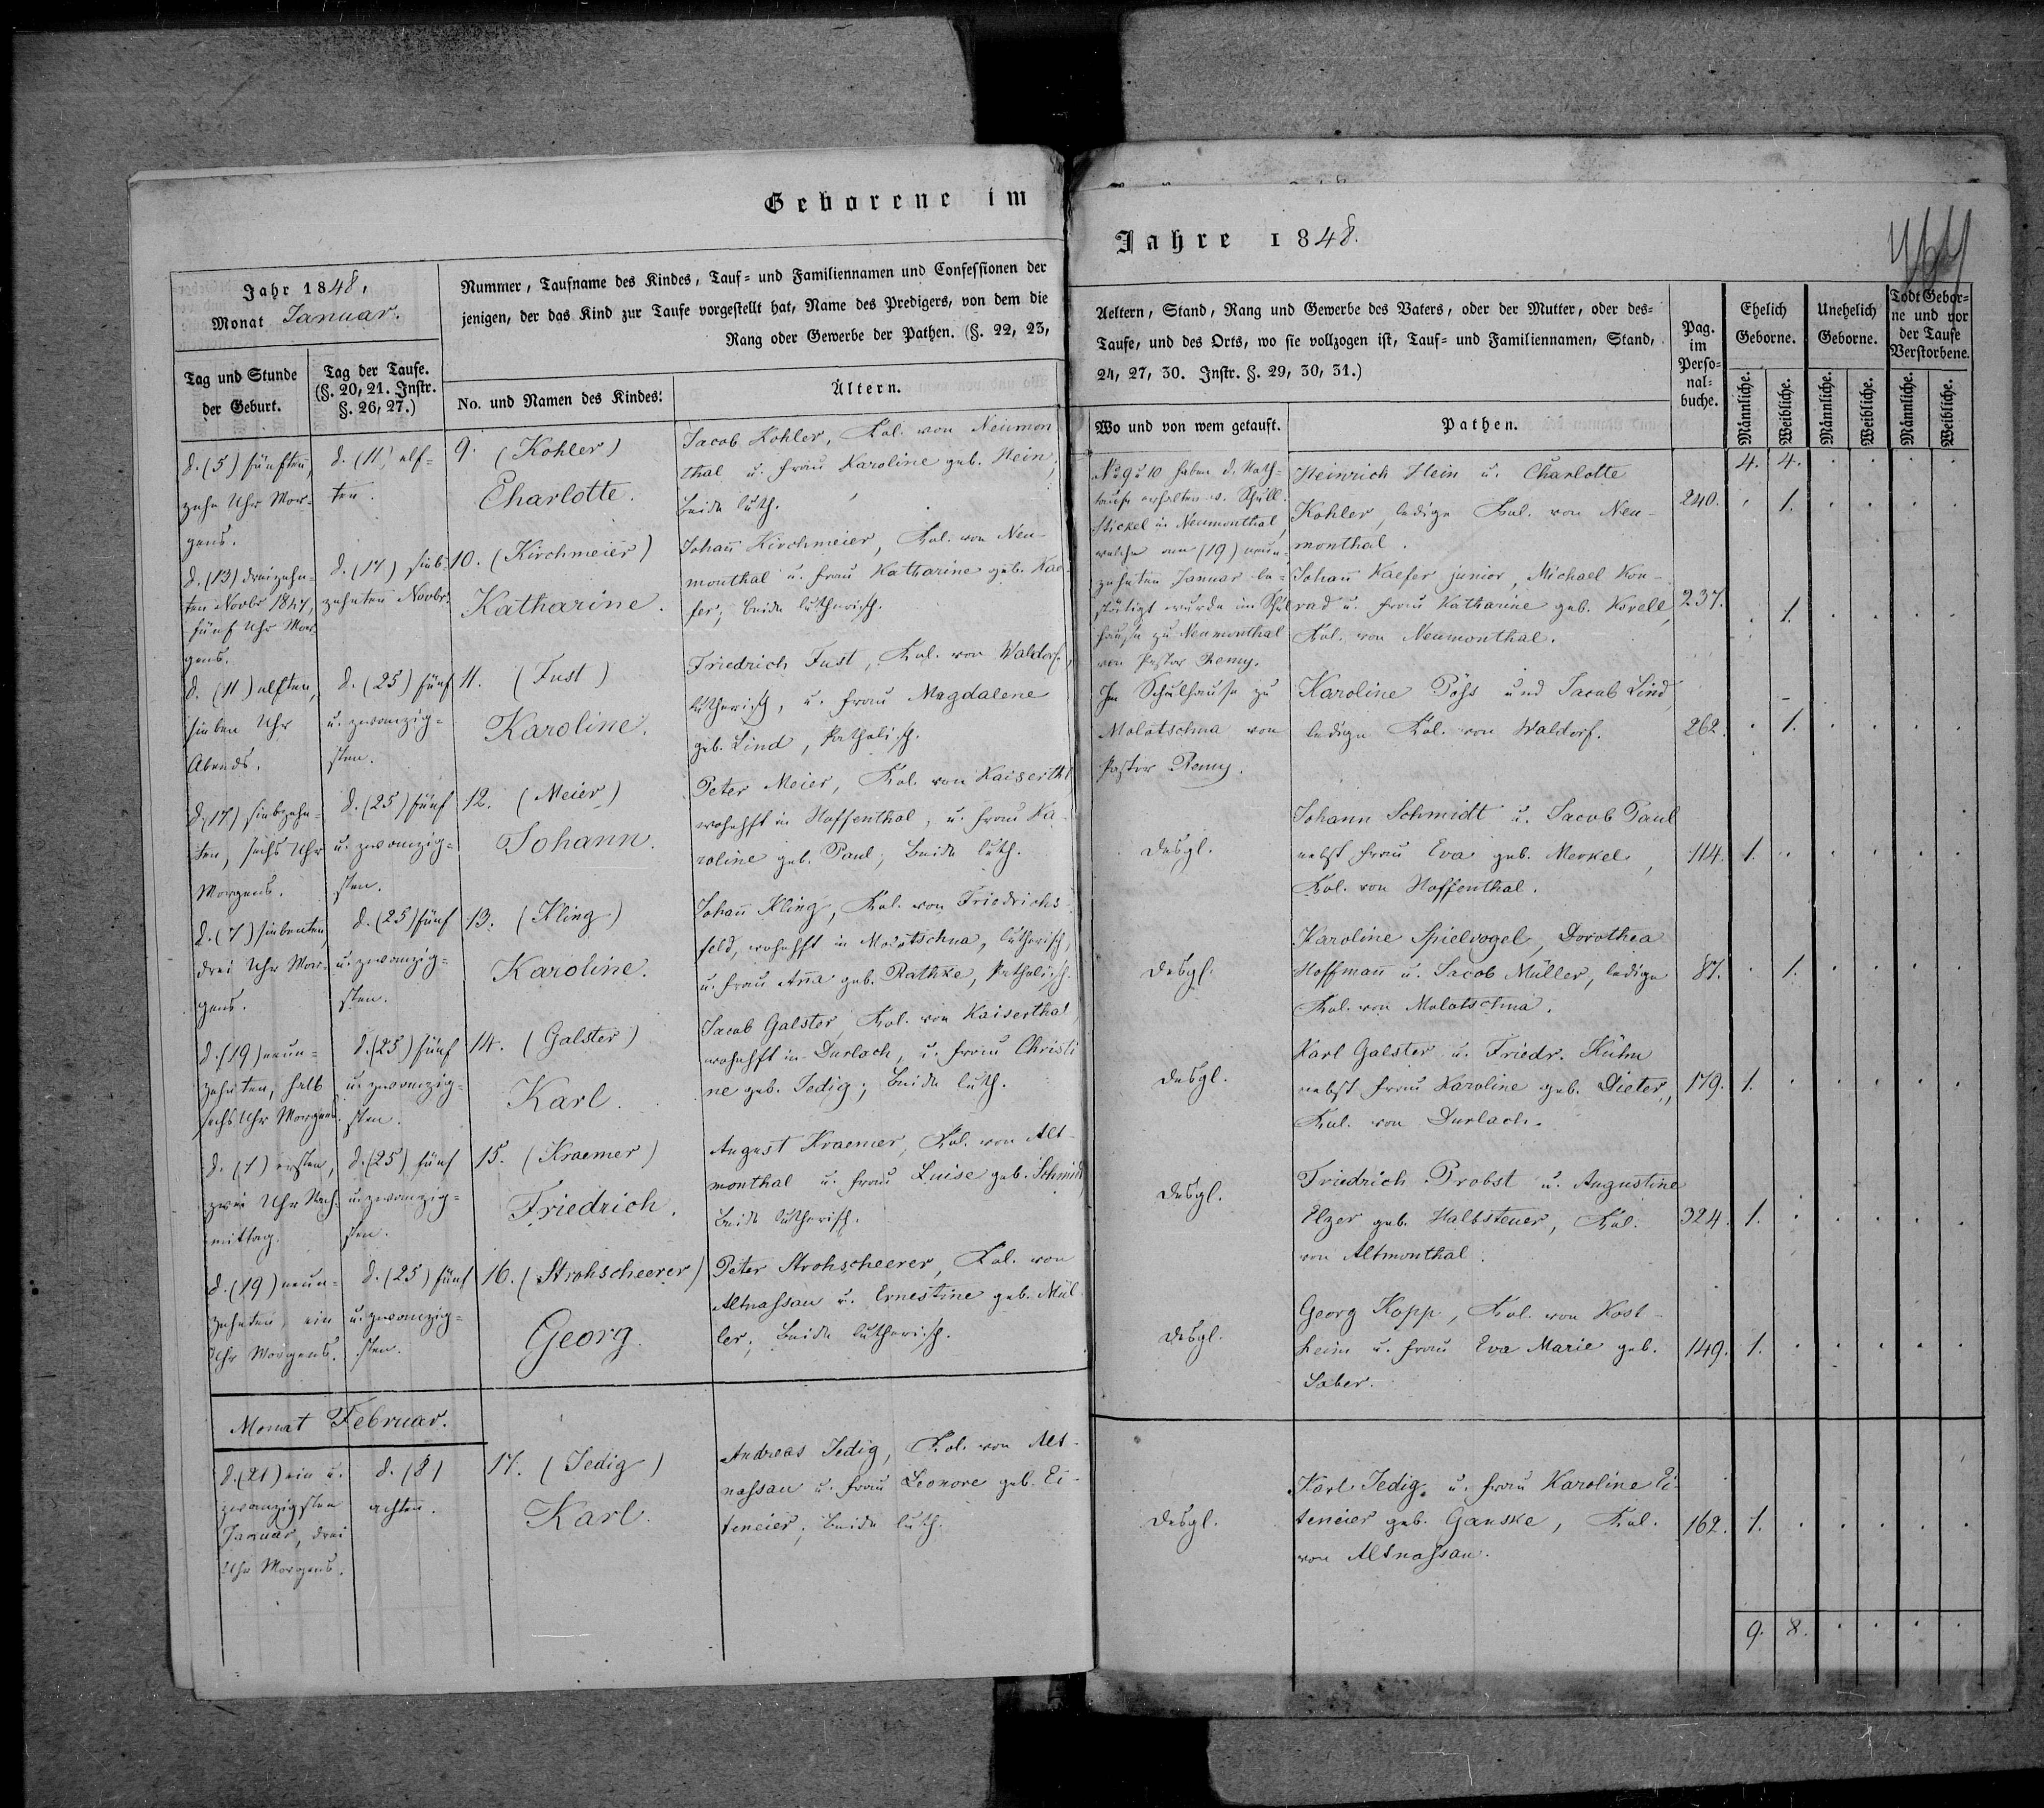 Geborene im
Jahr 1848.
Monat Januar.
Nummer, Taufname des Kindes, Tauf- und Familiennamen und Confessionen der
jenigen, der das Kind zur Taufe vorgestellt hat, Name des Predigers, von dem die
Rang oder Gewerbe der Pathen. (§. 22, 23,
Tag und Stunde
der Geburt.
Tag der Taufe.
(§. 20, 21. Instr.
§. 26, 27.)
No. und Namen des Kindes.
Ältern.
d. (5) fünften,
zehn Uhr Mor-
gens.
d. (11) elf-
ten.
9. (Kohler)
Charlotte.
Jacob Kohler, Kol. von Neumon
thal u. Frau Karoline geb. Hein,
beide luth.
d. (13) dreizehn-
ten Novbr 1847,
fünf Uhr Mor-
gens.
d. (17) sieb-
zehnten Novbr.
10. (Kirchmeier)
Katharine.
Johan̄ Kirchmeier, Kol. von Neu-
monthal u. Frau Katharine geb. Kae-
fer; beide lutherisch.
d. (11) elften,
sieben Uhr
Abends.
d. (25) fünf
u. zwanzig-
sten.
11. (Fust)
Karoline.
Friedrich Fust, Kol. von Waldorf,
lutherisch, u. Frau Magdalene
geb. Lind, katholisch.
d. (17) siebzehn-
ten, sechs Uhr
Morgens.
d. (25) fünf
u. zwanzig-
sten.
12. (Meier)
Johann.
Peter Meier, Kol. von Kaiserthl
wohnhft in Hoffenthal, u. Frau Ka-
roline geb. Paul; beide luth.
d. (7) siebenten,
drei Uhr Mor-
gens.
d. (25) fünf
u. zwanzig-
sten.
13. (Kling)
Karoline.
Johan̄ Kling, Kol. von Friedrichs-
feld, wohnhft in Molotschna, lutherisch,
u. Frau Anna geb. Rathke, katholisch.
d. (19) neun-
zehnten, halb
sechs Uhr Morgens.
d. (25) fünf
u. zwanzig-
sten.
14. (Galster)
Karl.
Jacob Galster, Kol. von Kaiserthal
wohnhft in Durlach, u. Frau Christi
ne geb. Jedig; beide luth.
d. (1) ersten,
zwei Uhr Nach-
mittag.
d. (25) fünf
u. zwanzig-
sten.
15. (Kraemer)
Friedrich.
August Kraemer, Kol. von Alt-
monthal u. Frau Luise geb. Schmidt,
beide lutherisch.
d. (19) neun-
zehnten, ein
Uhr Morgens.
d. (25) fünf
u. zwanzig-
sten.
16. (Strohscheerer)
Georg.
Peter Strohscheerer, Kol. von
Altnassau u. Ernestine geb. Mül-
ler; beide lutherisch.
Monat Februar.
d. (21) ein u.
zwanzigsten
Januar, drei
Uhr Morgens.
d. (8)
achten.
17. (Jedig)
Karl.
Andreas Jedig, Kol. von Alt-
nassau u. Frau Leonore geb. Ei-
teneier; beide luth.
Jahre 1848.
Aeltern, Stand, Rang und Gewerbe des Vaters, oder der Mutter, oder des-
Taufe, und des Orts, wo sie vollzogen ist, Tauf- und Familiennamen, Stand,
24, 27, 30. Instr. §. 29, 30, 31.)
Wo und von wem getauft.
Pathen.
Pag.
im
Perso-
nal-
buche.
Ehelich
Geborne.
Unehelich
Geborne.
Todt Gebor-
ne und vor
der Taufe
Verstorbene.
Männliche.
Weibliche.
Männliche.
Weibliche.
Männliche.
Weibliche.
4. 4.
No 9 u 10 haben d. Noth-
taufe erhalten v. Schull.
Stickel in Neumonthal,
welche am (19) neun-
zehnten Januar be-
stätigt wurde im Schul
hause zu Neumonthal
von Pastor Remy.
Heinrich Hein u. Charlotte
Kohler, ledige Kol. von Neu-
monthal.
240. 1.
Johan̄ Kaefer junior, Michael Kon-
rad u. Frau Katharine geb. Korell,
Kol. von Neumonthal.
237. 1.
Im Schulhause zu
Molotschna von
Pastor Remy.
Karoline Pöhs und Jacob Lind,
ledige Kol. von Waldorf.
262. 1.
desgl.
Johann Schmidt u. Jacob Paul
nebst Frau Eva geb. Merkel,
Kol. von Hoffenthal.
114. 1.
desgl.
Karoline Spielvogel, Dorothea
Hoffman̄ u. Jacob Müller, ledige
Kol. von Molotschna.
87. 1.
desgl.
Karl Galster u. Friedr. Kühn
nebst Frau Karoline geb. Dieter,
Kol. von Durlach.
179. 1.
desgl.
Friedrich Probst u. Augustine
Elzer geb. Halbsteuer, Kol.
von Altmonthal.
324. 1.
desgl.
Georg Kopp, Kol. von Kost-
heim u. Frau Eva Marie geb.
Saber.
149. 1.
desgl.
Karl Jedig u. Frau Karoline Ei-
teneier geb. Ganske, Kol.
von Altnassau.
162. 1.
9. 8.